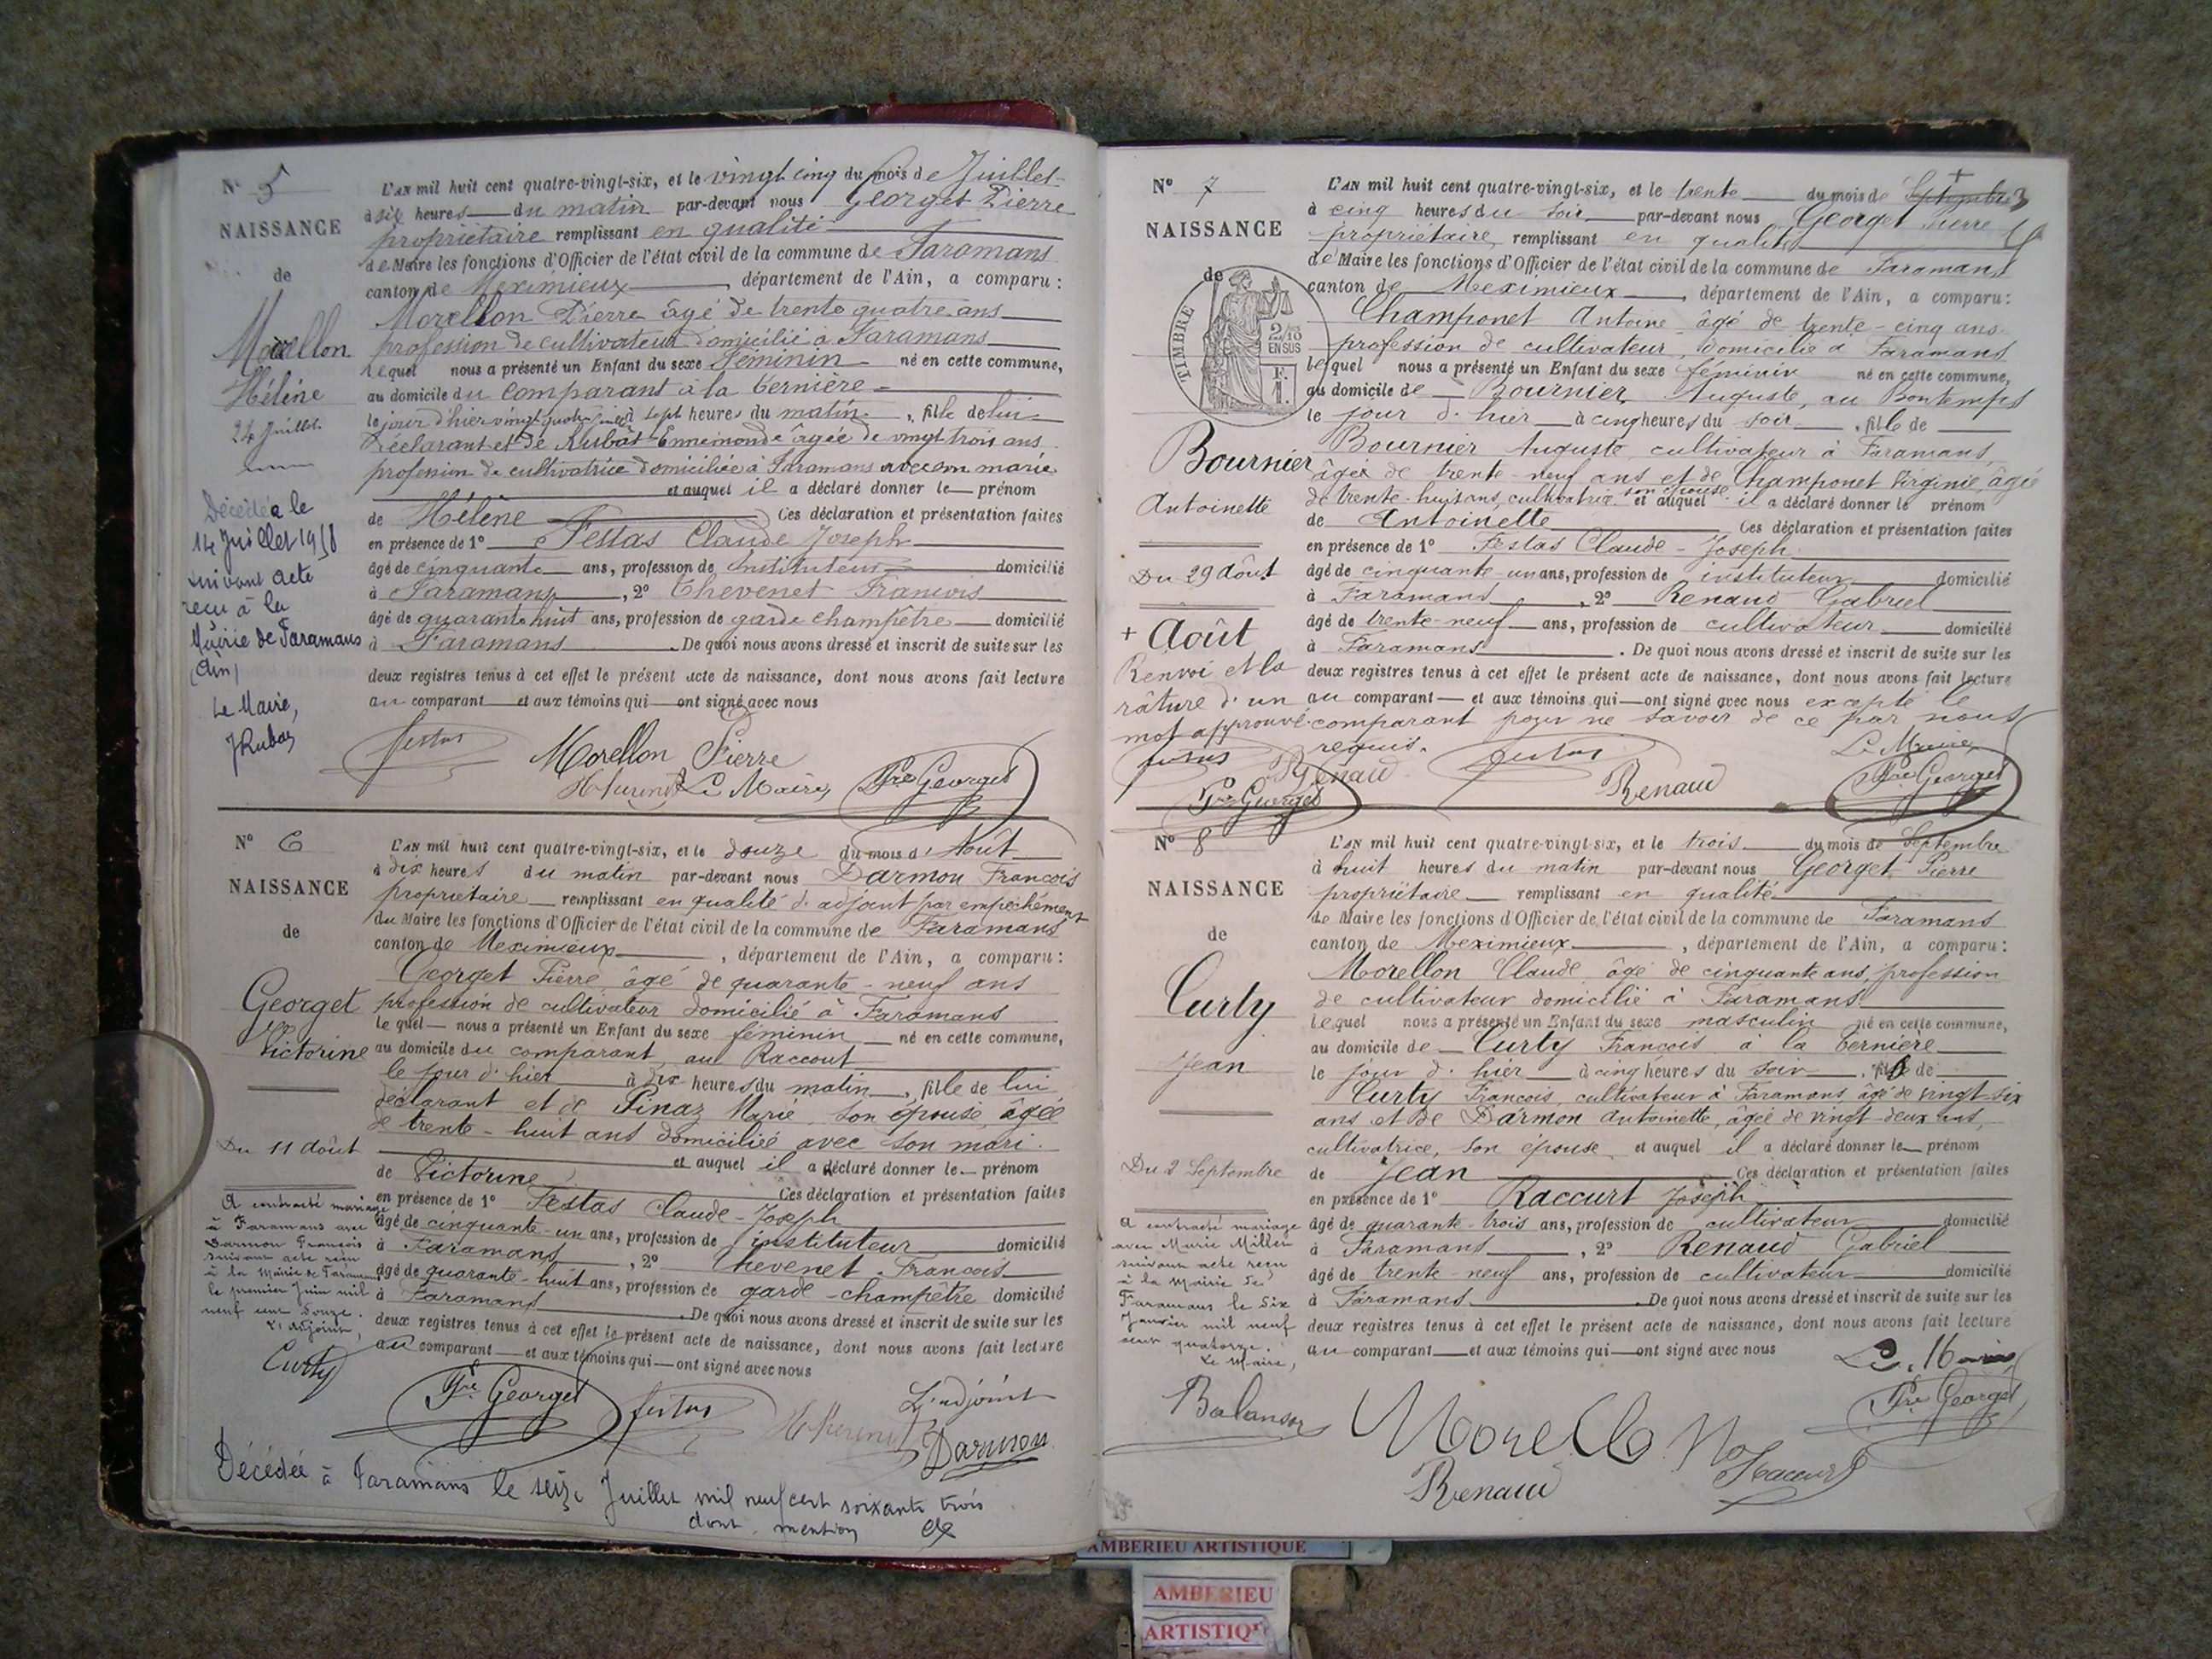 N° 5
NAISSANCE
de
Morellon
Hélène
24 Juillet
Décédée le
14 Juillet 1958
suivant acte
reçu à la
Mairie de Faramans
(Ain)
Le Maire,
L'AN mil huit cent quatre-vingt-six, et le vingt cinq du mois de Juillet
à six heures du matin par-devant nous Georget Pierre
propriétaire remplissant en qualité
de Maire les fonctions d'Officier de l'état civil de la commune de Faramans
canton de Meximieux, département de l'Ain, a comparu :
Morellon Pierre âgé de trente quatre ans
profession de cultivateur domicilié à Faramans
lequel nous a présenté un Enfant du sexe Féminin né en cette commune,
au domicile du comparant à la Bernière
le jour d'hier vingt quatre à sept heures du matin, fille de lui
déclarant et de Rubat Ennemonde âgée de vingt trois ans
profession de cultivatrice domiciliée à Faramans avec son marie
et auquel il a déclaré donner le prénom
de Hélène Ces déclaration et présentation faites
en présence de 1° Festas Claude Joseph
âgé de cinquante ans, profession de Instituteur domicilié
à Faramans, 2° Chevenet François
âgé de quarante huit ans, profession de garde champêtre domicilié
à Faramans. De quoi nous avons dressé et inscrit de suite sur les
deux registres tenus à cet effet le présent acte de naissance, dont nous avons fait lecture
au comparant et aux témoins qui ont signé avec nous
Festas Morellon Pierre
Le Maire, Pre Georget
N° 6
NAISSANCE
de
Georget
Victorine
Du 11 Août
A contracté mariage
à Faramans avec
Darmon François
suivant acte reçu
à la Mairie de Faramans
le premier Juin mil
neuf cent douze.
L'adjoint,
Curty
L'AN mil huit cent quatre-vingt-six, et le douze du mois d'Août
à dix heures du matin par-devant nous Darmon François
propriétaire remplissant en qualité d'adjoint par empêchement
du Maire les fonctions d'Officier de l'état civil de la commune de Faramans
canton de Meximieux, département de l'Ain, a comparu :
Georget Pierre, âgé de quarante-neuf ans
profession de cultivateur domicilié à Faramans
le quel nous a présenté un Enfant du sexe féminin né en cette commune,
au domicile du comparant, au Raccout
le jour d'hier à dix heures du matin, fille de lui
déclarant et de Pinaz Marie son épouse, âgée
de trente-huit ans domiciliée avec son mari.
et auquel il a déclaré donner le prénom
de Victorine Ces déclaration et présentation faites
en présence de 1° Festas Claude-Joseph
âgé de cinquante-un ans, profession de instituteur domicilié
à Faramans, 2° Chevenet François
âgé de quarante-huit ans, profession de garde-champêtre domicilié
à Faramans. De quoi nous avons dressé et inscrit de suite sur les
deux registres tenus à cet effet le présent acte de naissance, dont nous avons fait lecture
au comparant et aux témoins qui ont signé avec nous
L'adjoint
Pre Georget Festas Darmon
Décédée à Faramans le seize Juillet mil neuf cent soixante trois
dont mention
N° 7
NAISSANCE
de
TIMBRE
2/10
EN SUS
F.
1.
Bournier
Antoinette
Du 29 Août
+ Août
Renvoi et la
râture d'un
mot approuvé.
Festas Renaud
Pre Georget
L'AN mil huit cent quatre-vingt-six, et le trente du mois de Septembre +
à cinq heures du soir par-devant nous Georget Pierre
propriétaire, remplissant en qualité
de Maire les fonctions d'Officier de l'état civil de la commune de Faramans
canton de Meximieux, département de l'Ain, a comparu :
Champonet Antoine âgé de trente-cinq ans
profession de cultivateur, domicilié à Faramans
lequel nous a présenté un Enfant du sexe féminin né en cette commune,
au domicile de Bournier Auguste, au Bontemps
le jour d'hier à cinq heures du soir, fille de
Bournier Auguste cultivateur à Faramans
âgé de trente-neuf ans et de Champonet Virginie, âgée
de trente-huit ans, cultivatrice son épouse et auquel il a déclaré donner le prénom
de Antoinette Ces déclaration et présentation faites
en présence de 1° Festas Claude-Joseph
âgé de cinquante-un ans, profession de instituteur domicilié
à Faramans, 2° Renaud Gabriel
âgé de trente-neuf ans, profession de cultivateur domicilié
à Faramans. De quoi nous avons dressé et inscrit de suite sur les
deux registres tenus à cet effet le présent acte de naissance, dont nous avons fait lecture
au comparant et aux témoins qui ont signé avec nous excepté le
comparant pour ne savoir de ce par nous
requis. Le Maire
Festas Renaud Pre Georget
N° 8
NAISSANCE
de
Curty
Jean
Du 2 Septembre
A contracté mariage
avec Marie Millet
suivant acte reçu
à la Mairie de
Faramans le six
Janvier mil neuf
cent quatorze.
Le Maire,
L'AN mil huit cent quatre-vingt-six, et le trois du mois de Septembre
à huit heures du matin par-devant nous Georget Pierre
propriétaire remplissant en qualité
de Maire les fonctions d'Officier de l'état civil de la commune de Faramans
canton de Meximieux, département de l'Ain, a comparu :
Morellon Claude âgé de cinquante ans, profession
de cultivateur domicilié à Faramans
lequel nous a présenté un Enfant du sexe masculin né en cette commune,
au domicile de Curty François à la Bernière
le jour d'hier à cinq heures du soir, fils de
Curty François, cultivateur à Faramans, âgé de vingt-six
ans et de Darmon Antoinette, âgée de vingt-deux ans,
cultivatrice, son épouse et auquel il a déclaré donner le prénom
de Jean Ces déclaration et présentation faites
en présence de 1° Raccurt Joseph
âgé de quarante-trois ans, profession de cultivateur domicilié
à Faramans, 2° Renaud Gabriel
âgé de trente-neuf ans, profession de cultivateur domicilié
à Faramans. De quoi nous avons dressé et inscrit de suite sur les
deux registres tenus à cet effet le présent acte de naissance, dont nous avons fait lecture
au comparant et aux témoins qui ont signé avec nous
Le Maire
Pre Georget
Renaud Raccurt
AMBERIEU ARTISTIQUE
AMBERIEU
ARTISTIQ